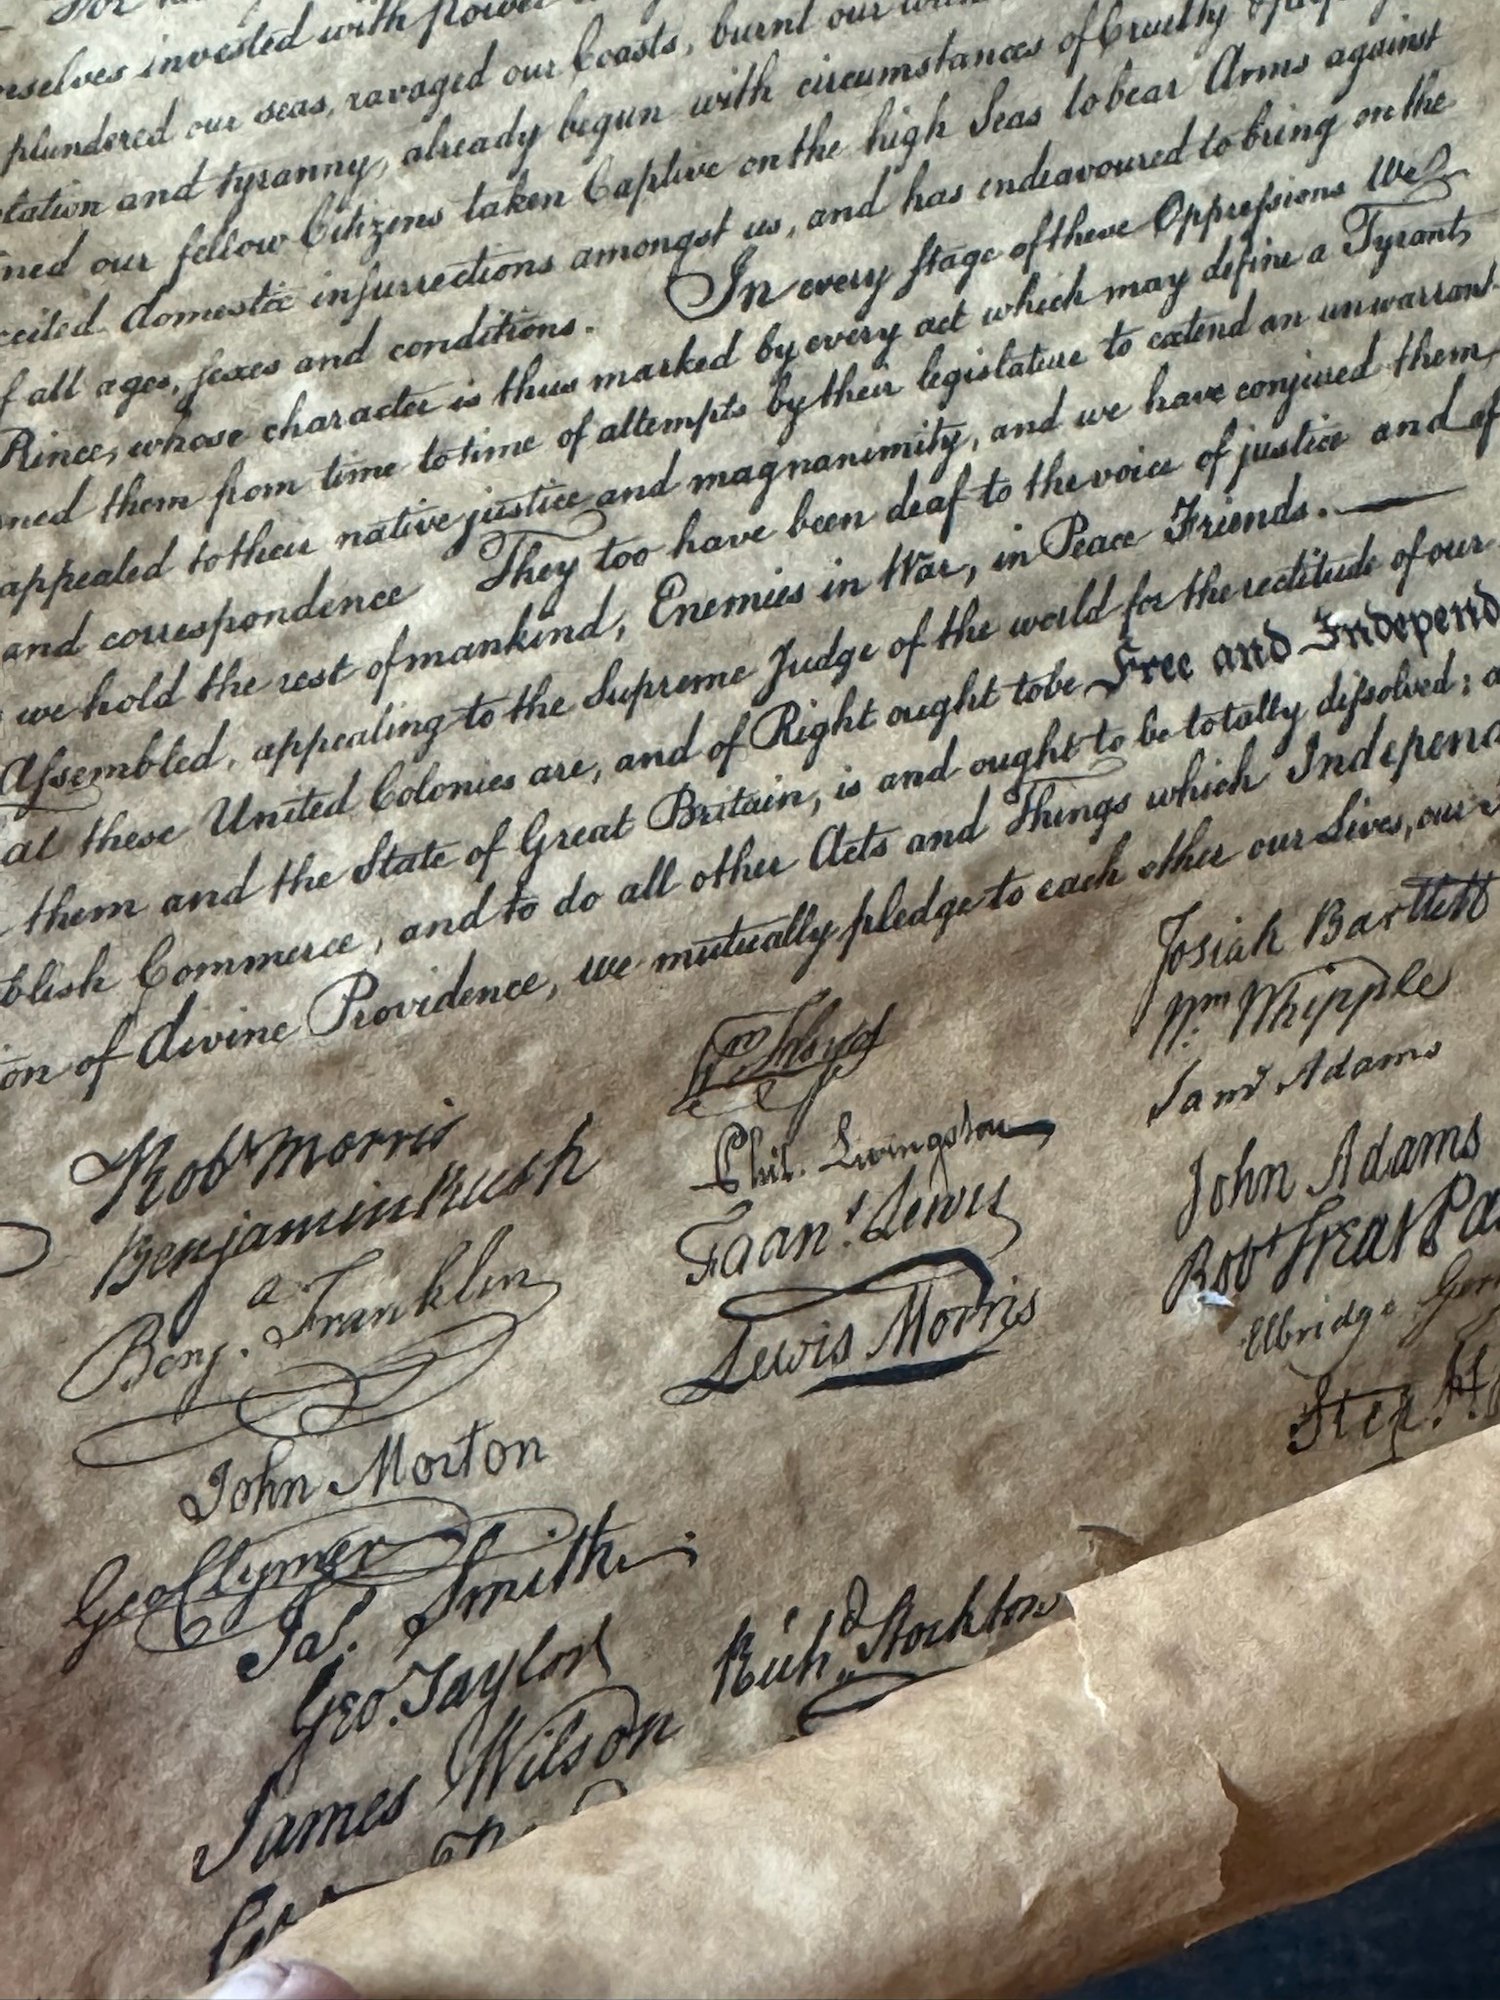 invested with power
plundered our seas, ravaged our Coasts, burnt our
and tyranny, already begun with circumstances of Cruelty &
our fellow Citizens taken Captive on the high Seas to bear Arms against
domestic insurrections amongst us, and has endeavoured to bring on the
all ages, sexes and conditions. In every stage of these Oppressions We
Prince, whose character is thus marked by every act which may define a Tyrant,
them from time to time of attempts by their legislature to extend an unwarrant-
appealed to their native justice and magnanimity, and we have conjured them,
and correspondence They too have been deaf to the voice of justice and of
we hold the rest of mankind, Enemies in War, in Peace Friends.
Assembled, appealing to the Supreme Judge of the world for the rectitude of our
these United Colonies are, and of Right ought to be Free and Independ
them and the State of Great Britain, is and ought to be totally dissolved; a
blish Commerce, and to do all other Acts and Things which Independ
on of divine Providence, we mutually pledge to each other our Lives, our
Josiah Bartlett
Wm Whipple
Saml Adams
John Adams
Robt Treat Pa
Elbridge Ger
Step. H
Wm Floyd
Phil. Livingston
Frans. Lewis
Lewis Morris
Richd. Stockton
Robt Morris
Benjamin Rush
Benja. Franklin
John Morton
Geo Clymer
Jas. Smith
Geo. Taylor
James Wilson